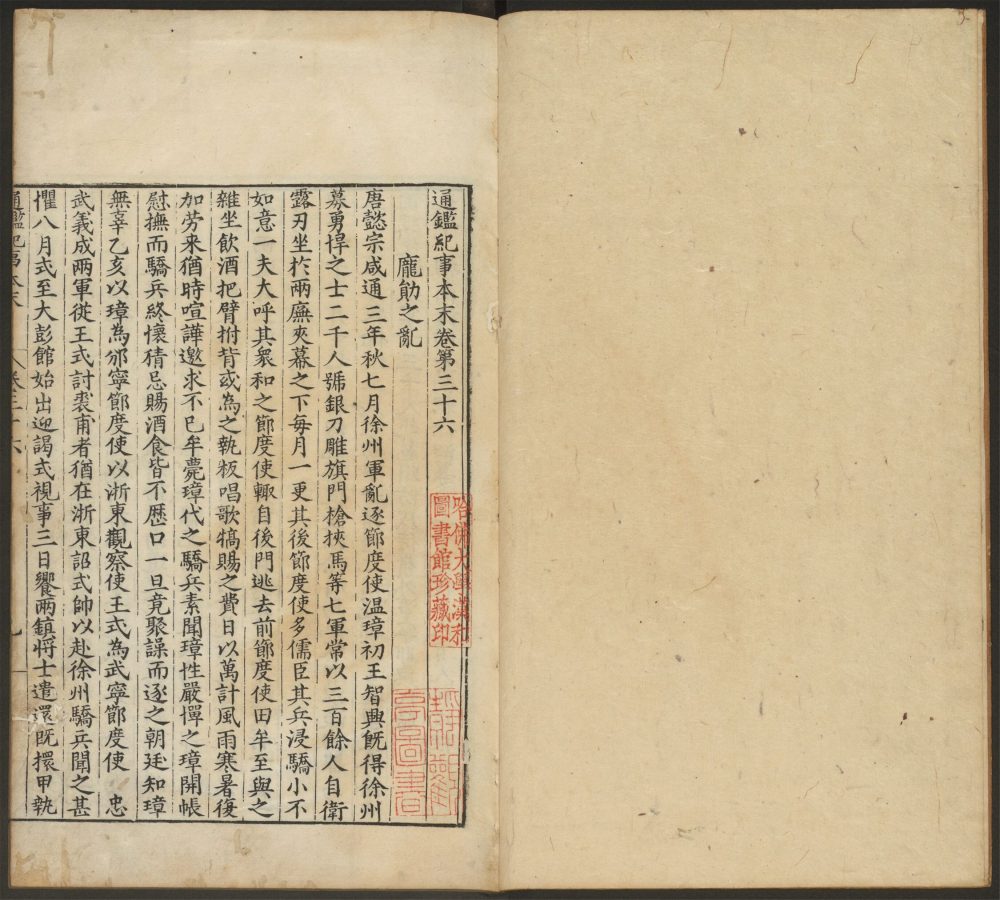 通鑑紀事本末卷第三十六
龐勛之亂
唐懿宗咸通三年秋七月徐州軍亂逐節度使温璋初王智興旣得徐州
募勇悍之士二千人號銀刀雕旗門槍挾馬等七軍常以三百餘人自衛
露刃坐於兩廡夾幕之下每月一更其後節度使多儒臣其兵浸驕小不
如意一夫大呼其衆和之節度使輙自後門逃去前節度使田牟至與之
雜坐飲酒把臂拊背或為之執板唱歌犒賜之費日以萬計風雨寒暑復
加勞來猶時喧譁邀求不已牟薨璋代之驕兵素聞璋性嚴憚之璋開帳
慰撫而驕兵終懷猜忌賜酒食皆不歷口一旦竟聚譟而逐之朝廷知璋
無辜乙亥以璋為邠寧節度使以浙東觀察使王式為武寧節度使 忠
武義成兩軍從王式討裘甫者猶在浙東詔式帥以赴徐州驕兵聞之甚
懼八月式至大彭館始出迎謁式視事三日饗兩鎮將士遣還旣擐甲執
通鑑紀事本末 卷三十六 一
哈佛大學漢和
圖書館珍藏印